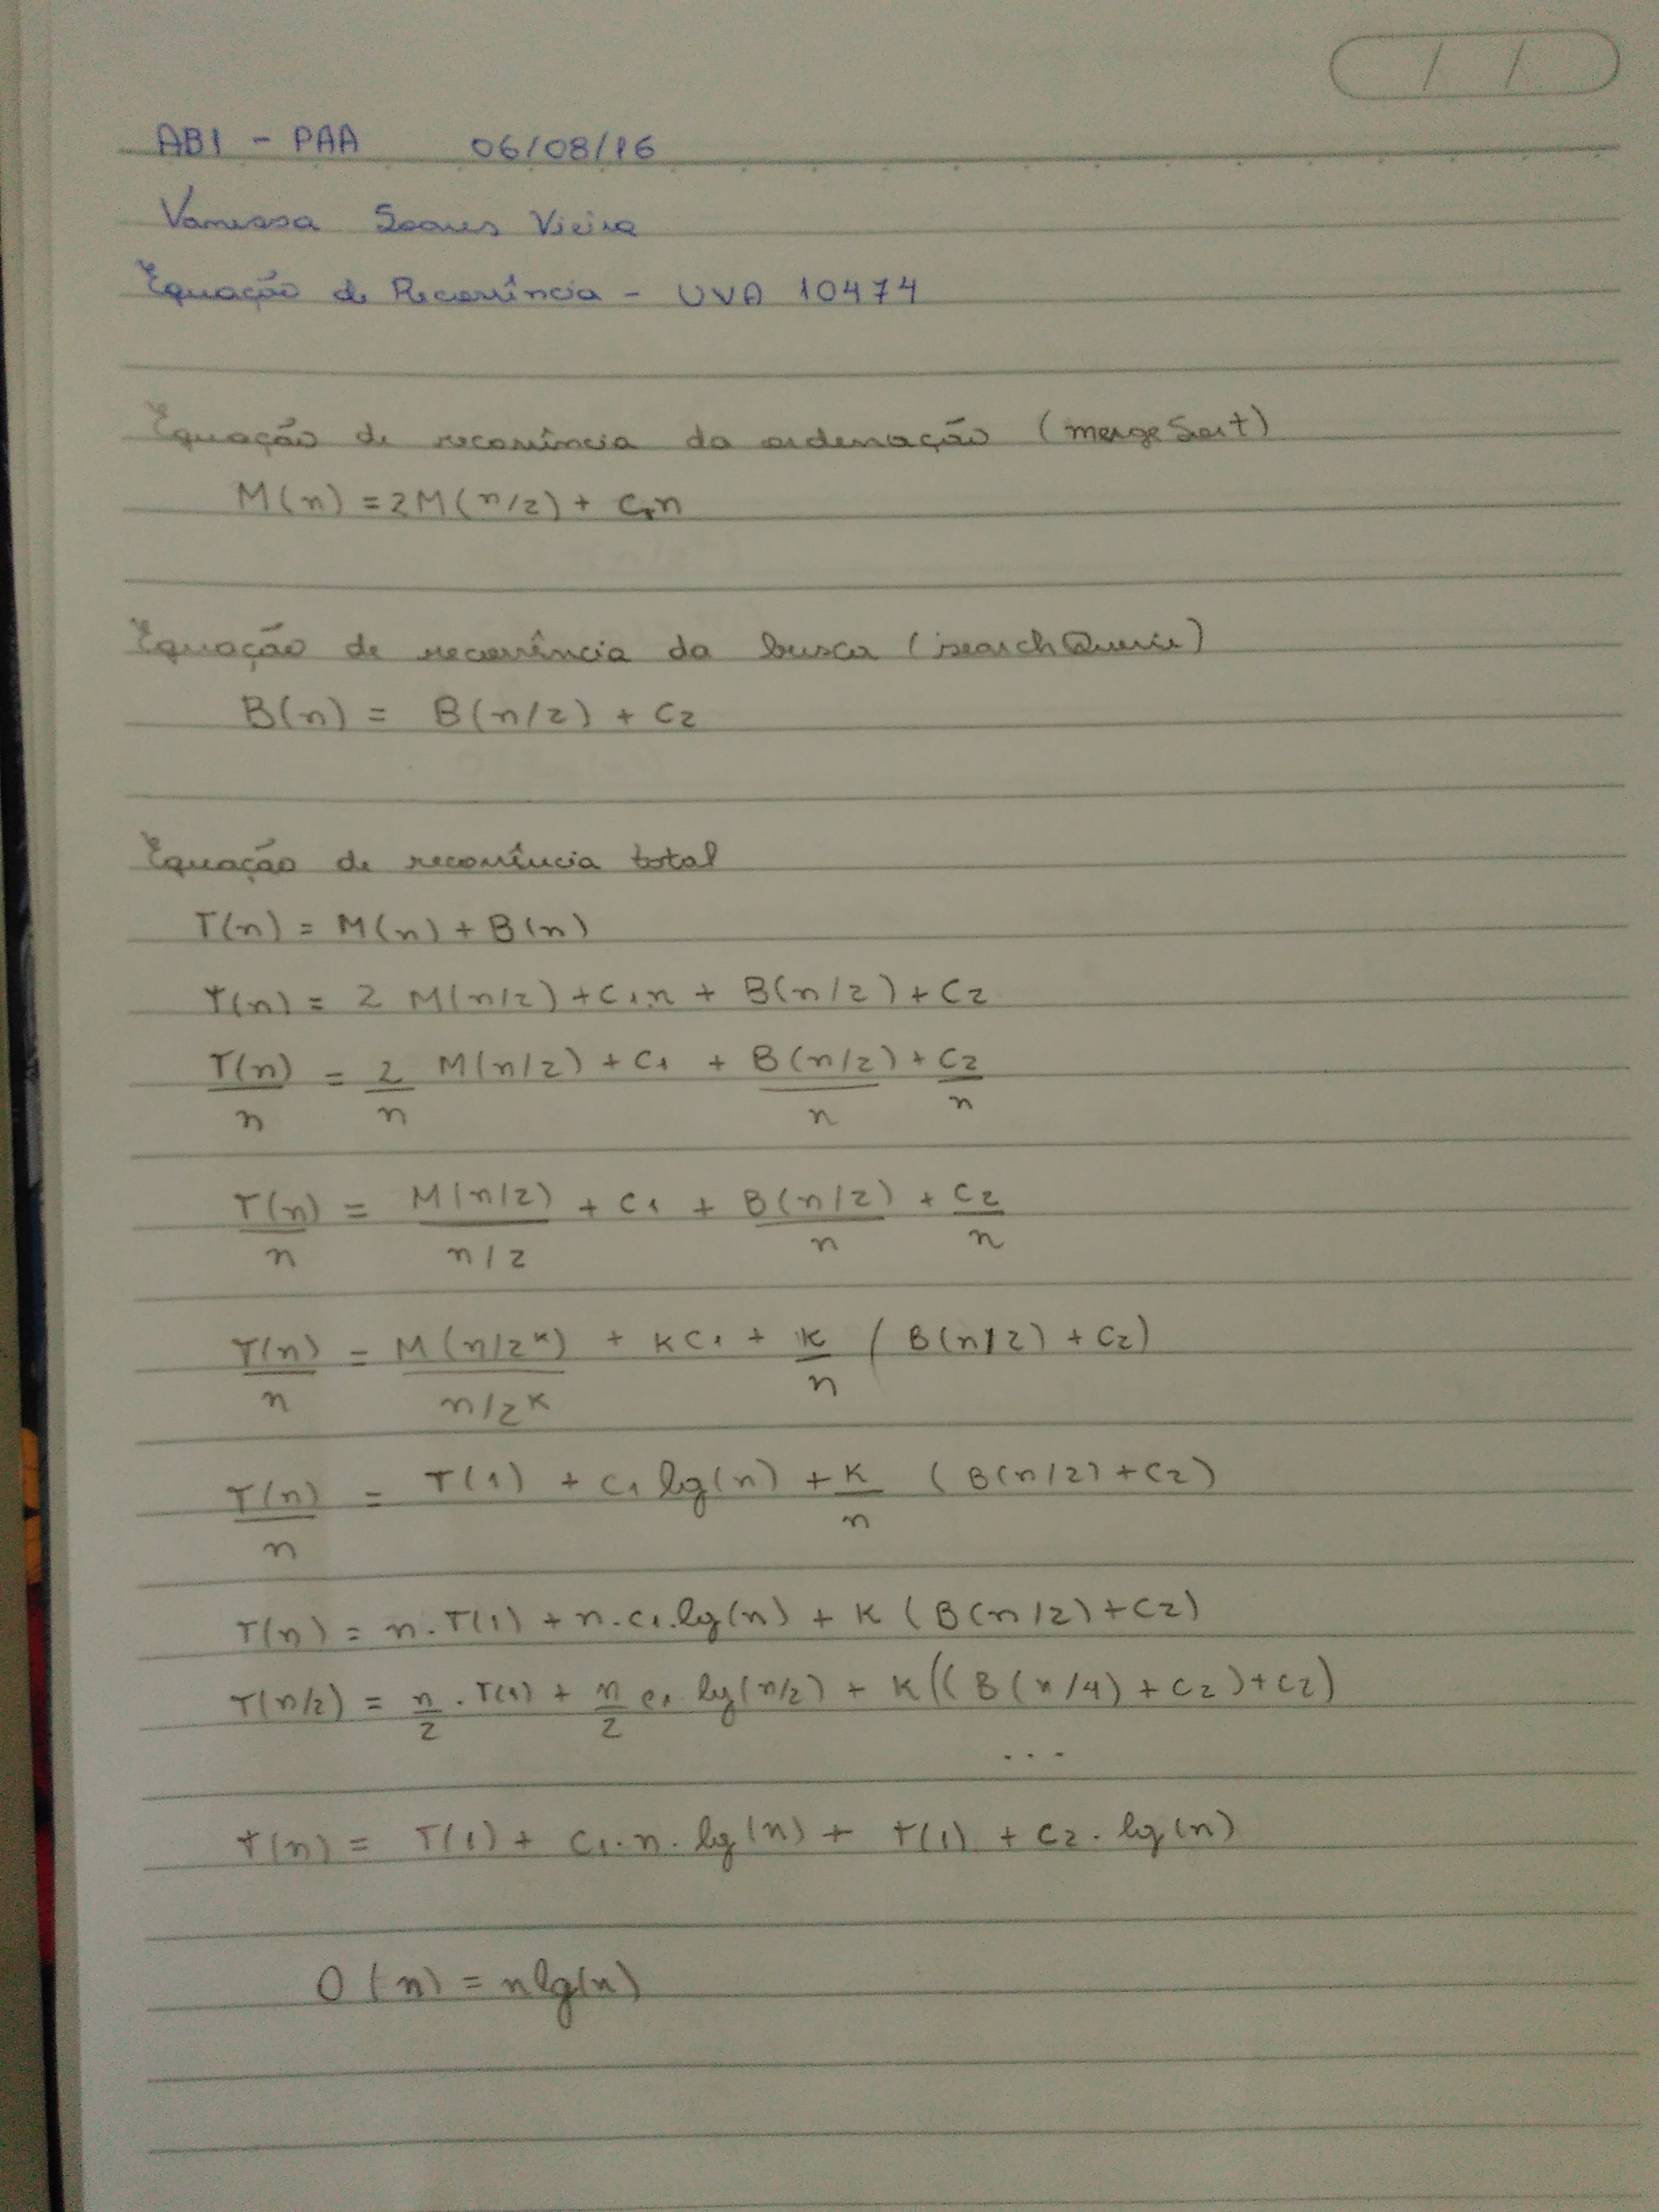 / /
AB1 - PAA 06/08/16
Vanessa Soares Vieira
Equação de Recorrência - UVA 10474
Equação de recorrência da ordenação (mergeSort)
M(n) = 2M(n/2) + C₁n
Equação de recorrência da busca (searchQuerie)
B(n) = B(n/2) + C₂
Equação de recorrência total
T(n) = M(n) + B(n)
T(n) = 2 M(n/2) + C₁n + B(n/2) + C₂
T(n)/n = 2/n M(n/2) + C₁ + B(n/2)/n + C₂/n
T(n)/n = M(n/2)/(n/2) + C₁ + B(n/2)/n + C₂/n
T(n)/n = M(n/2ᵏ)/(n/2ᵏ) + KC₁ + K/n (B(n/2) + C₂)
T(n)/n = T(1) + C₁ lg(n) + K/n (B(n/2) + C₂)
T(n) = n.T(1) + n.C₁.lg(n) + K (B(n/2) + C₂)
T(n/2) = n/2 . T(1) + n/2 C₁ lg(n/2) + K((B(n/4) + C₂) + C₂)
...
T(n) = T(1) + C₁.n.lg(n) + T(1) + C₂.lg(n)
O(n) = nlg(n)